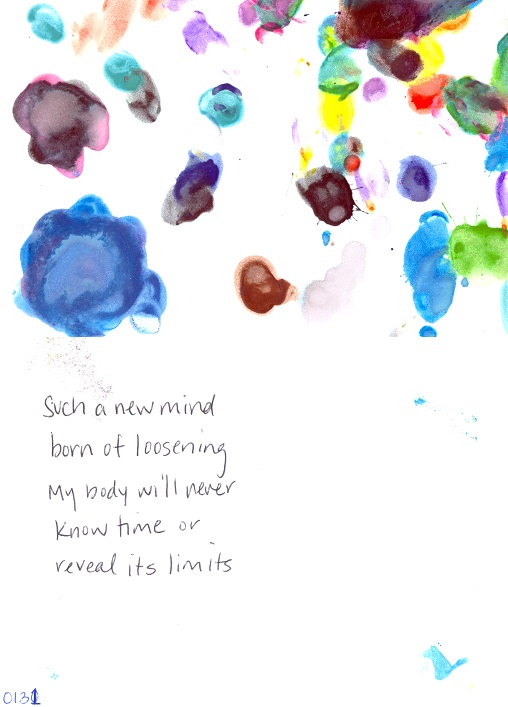 Such a new mind
born of loosening
My body will never
know time or
reveal its limits
0131